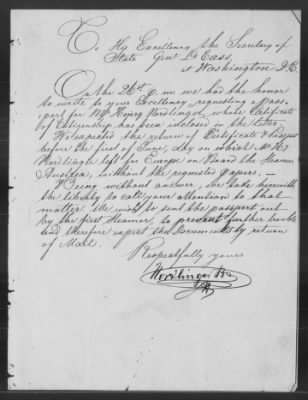 To His Excellency the Secretary of
State Genl Ls Cass,
at Washington D.C.
On the 26th p.m we had the honor
to write to your Excellency, requesting a Pass-
port for Mr Henry Nordlinger, whose Certificate
of Citizenship has been inclosed in the letter.
We expected the return of Certificate &
before the first of June, day on which Mr Hy
Nordlinger left for Europe on Board the Steamer
without the requested papers. —
Being without answer, we take herewith
the liberty to call your attention to that
matter. We wish to sent the passport out
by the first Steamer, to prevent further trouble
and therefore expect the Documents by return
of Mail.
Respectfully yours
Nordlinger